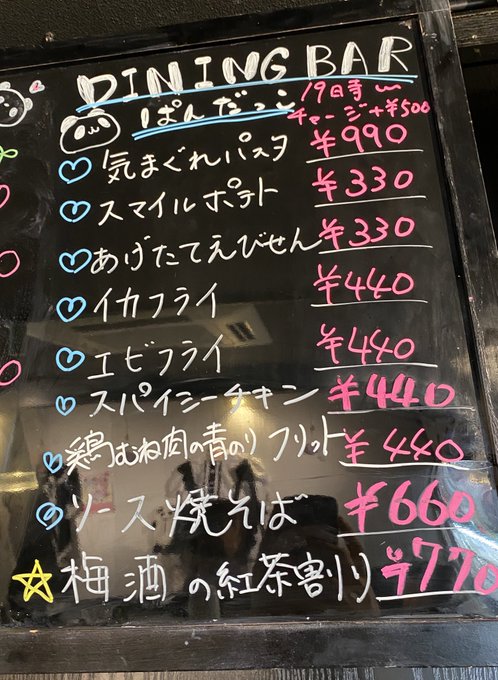 DINING BAR
ぱんだっこ
19日寺〜
チャージ+¥500
気まぐれパスタ ¥990
スマイルポテト ¥330
あげたてえびせん ¥330
イカフライ ¥440
エビフライ ¥440
スパイシーチキン ¥440
鶏むね肉の青のりフリット ¥440
ソース焼そば ¥660
梅酒の紅茶割り ¥770